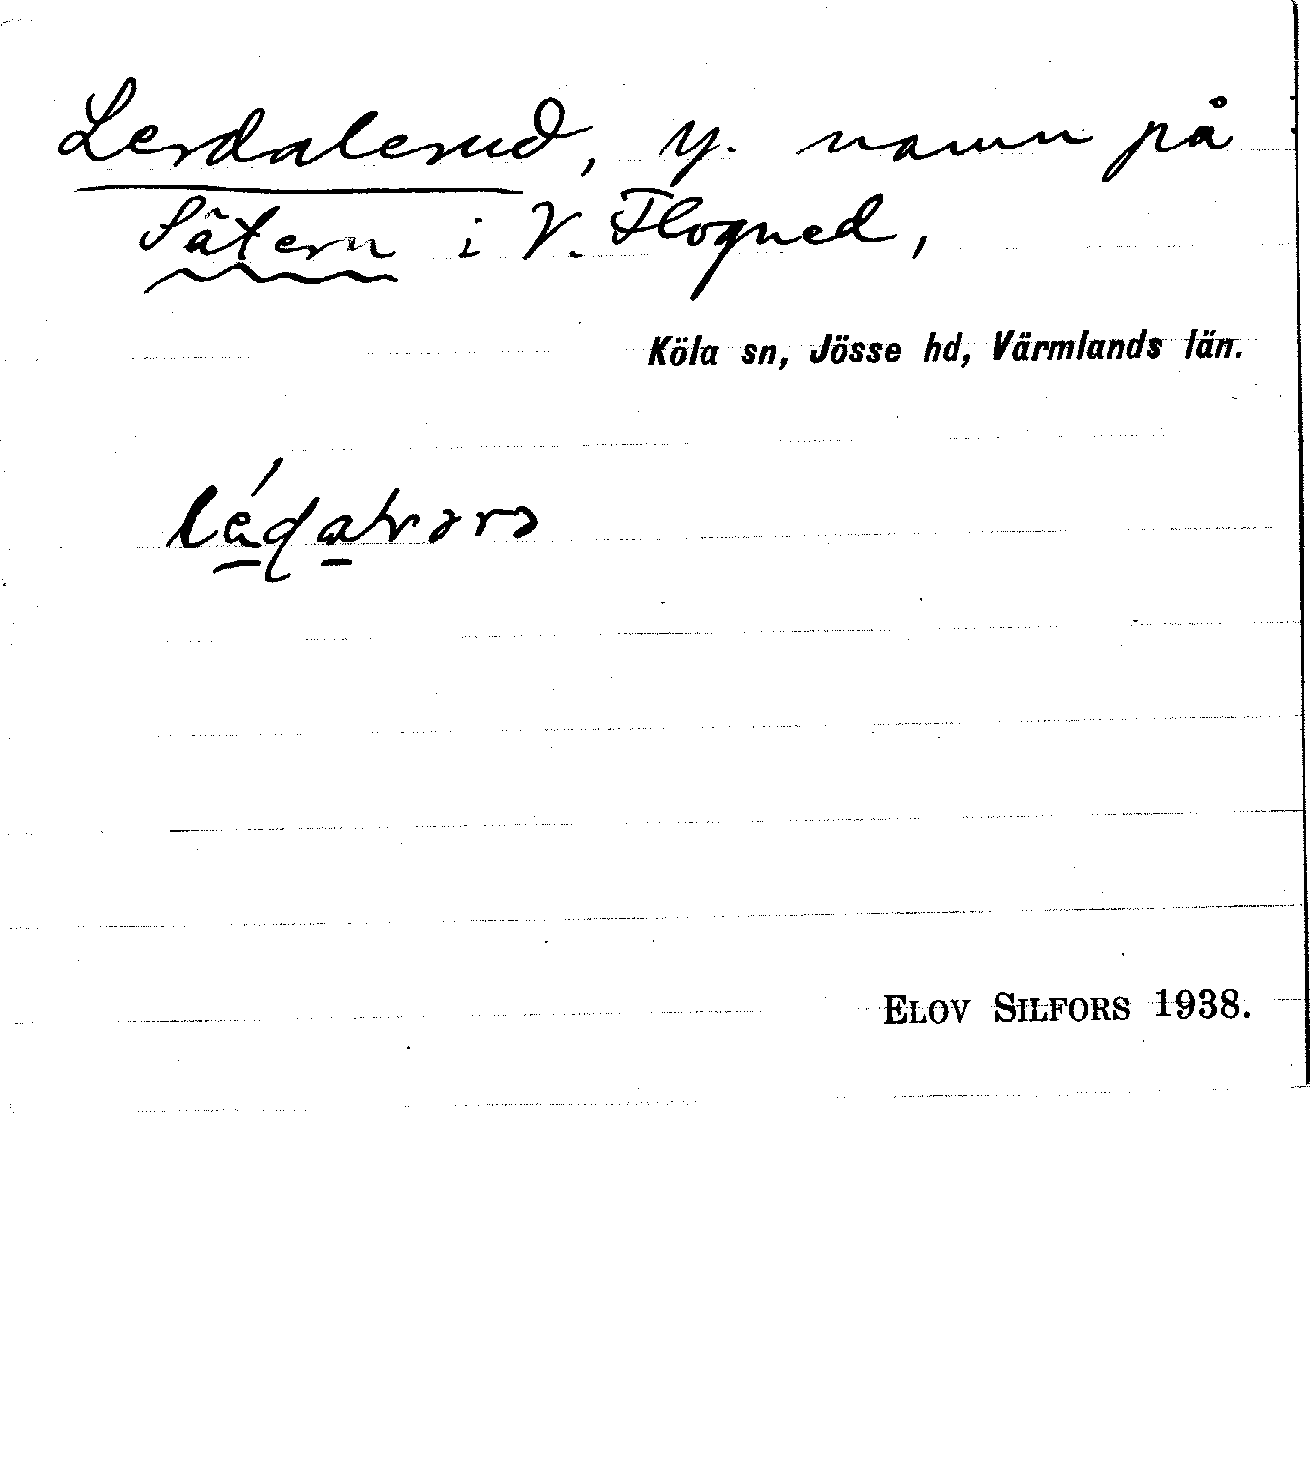 Lerdalerud, y. namn på
Sätern i V. Flogned,
Köla sn, Jösse hd, Värmlands län.
ELOV SILFORS 1938.